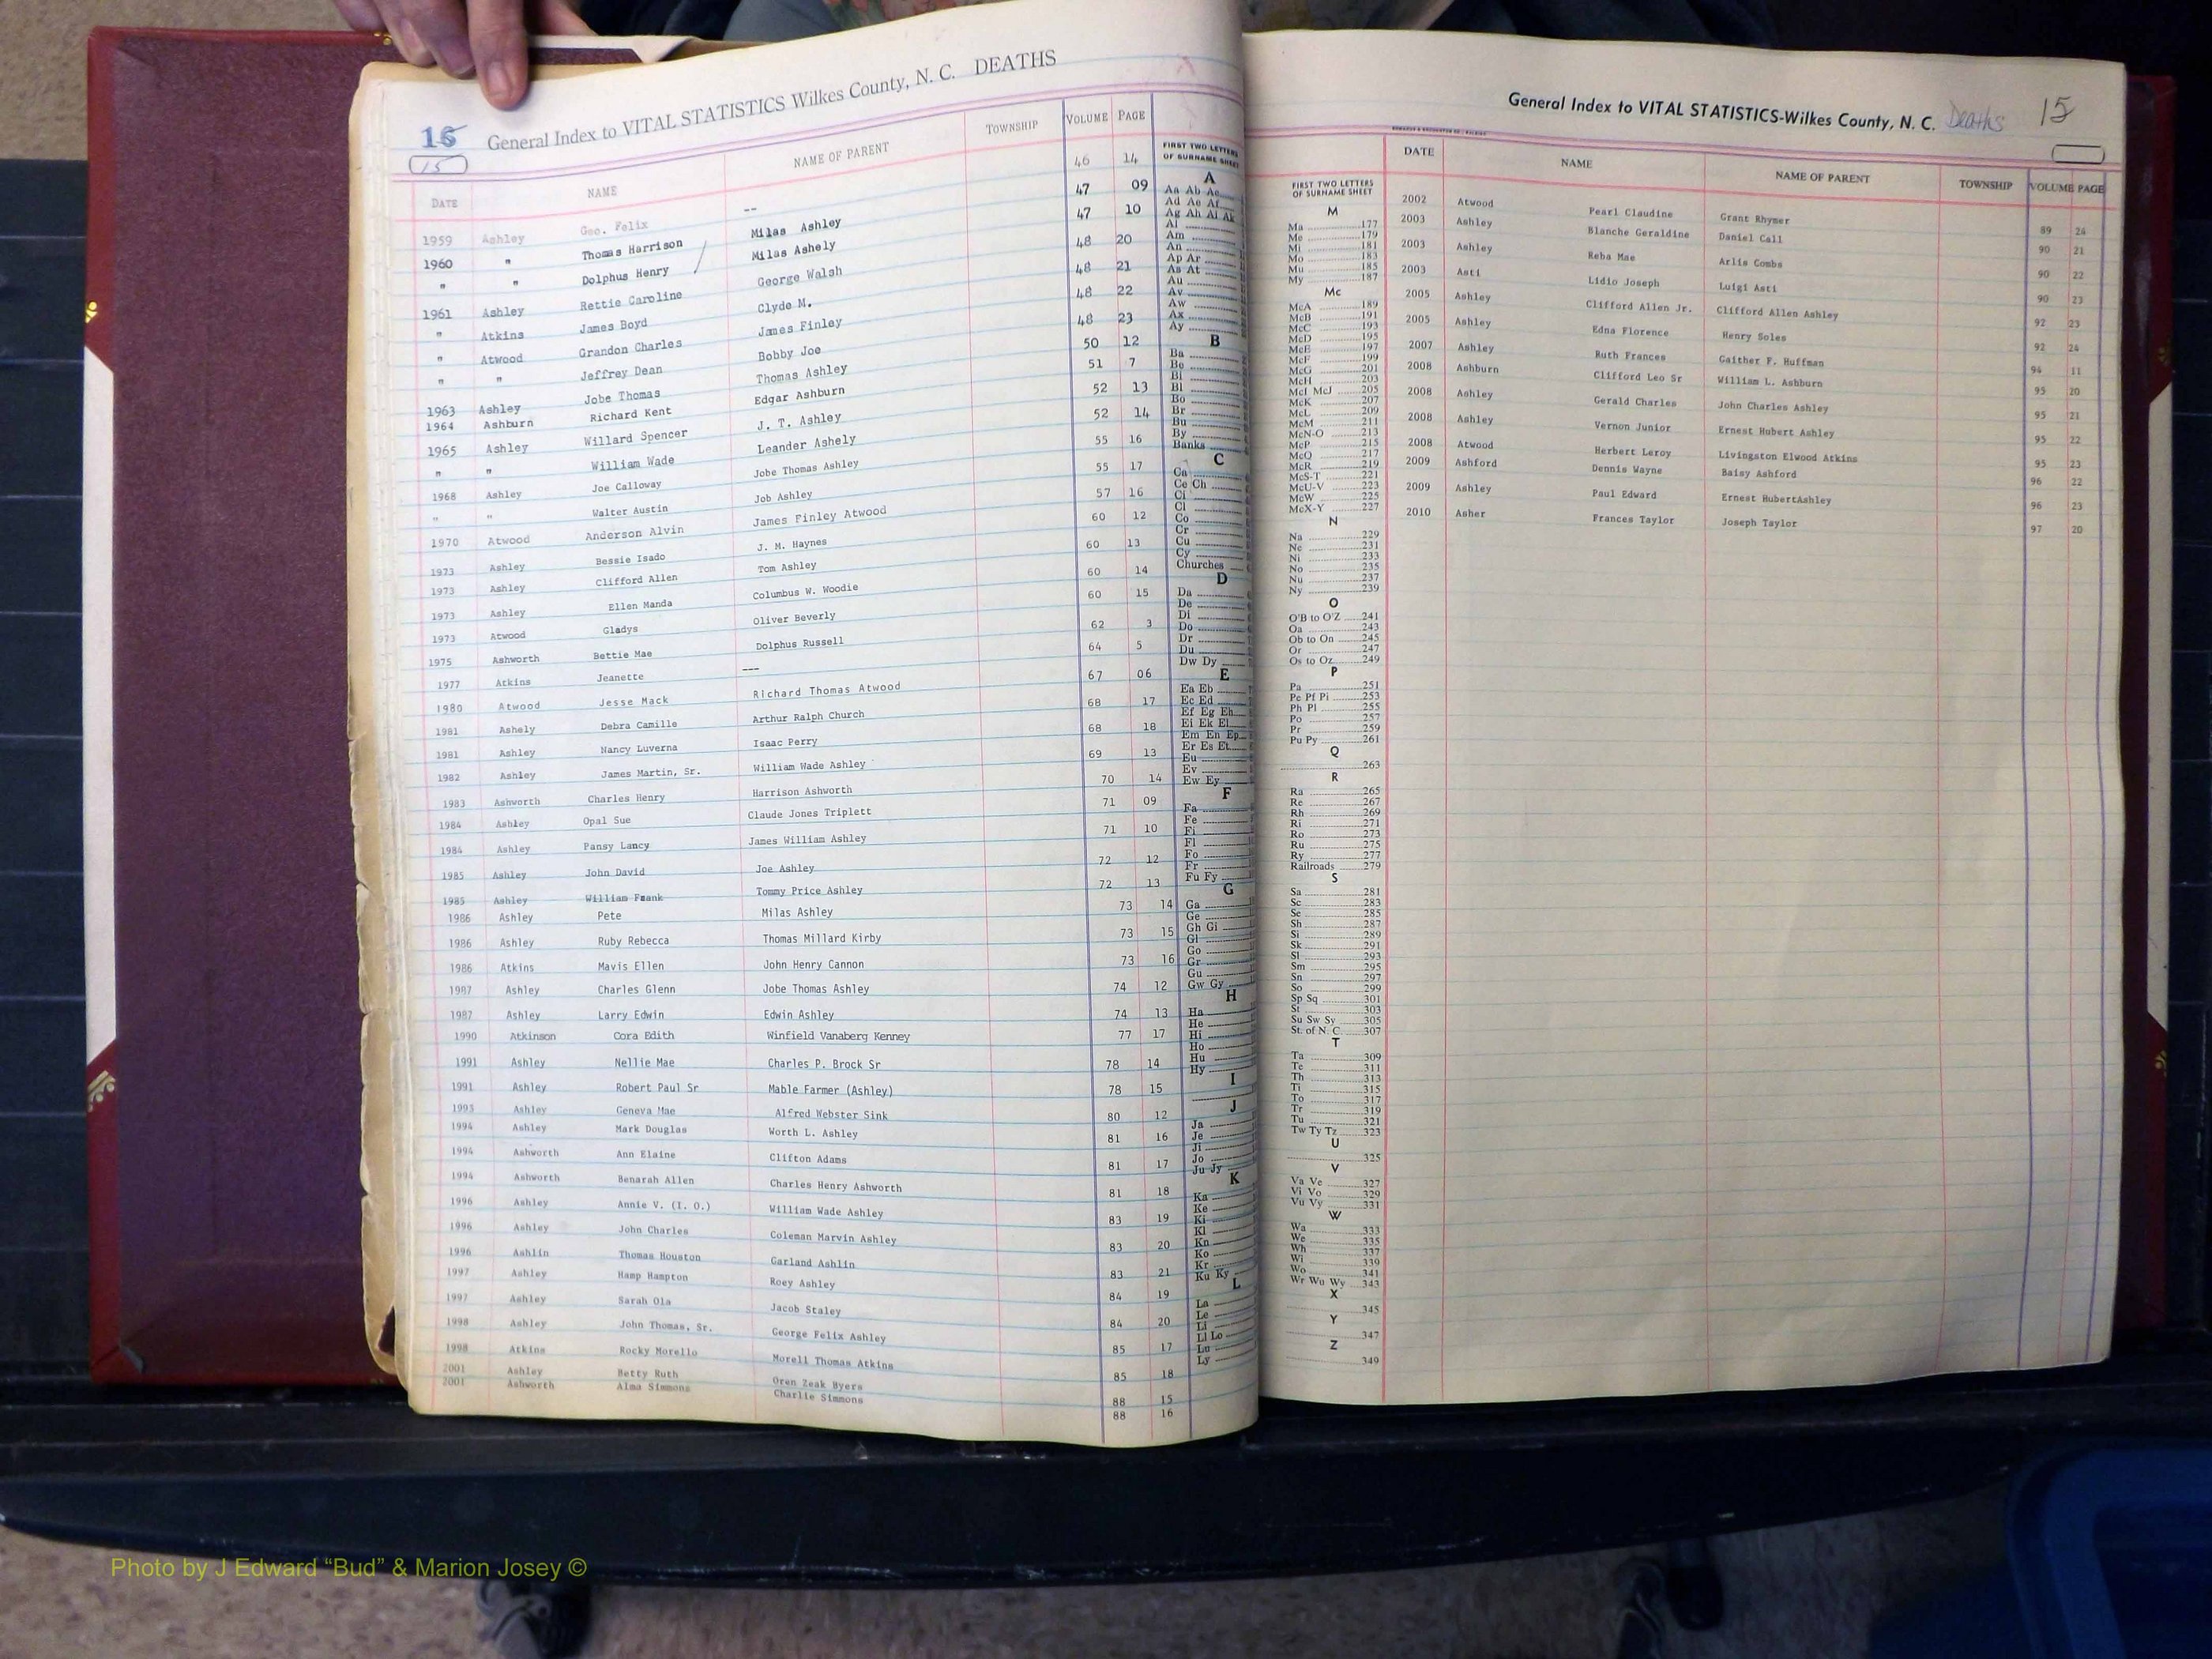 16 General Index to VITAL STATISTICS Wilkes County, N. C. DEATHS
15
DATE NAME NAME OF PARENT TOWNSHIP VOLUME PAGE
1959 Ashley Geo. Felix -- 46 14
1960 " Thomas Harrison Milas Ashley 47 09
" " Dolphus Henry Milas Ashely 47 10
1961 Ashley Rettie Caroline George Walsh 48 20
" Atkins James Boyd Clyde M. 48 21
" Atwood Grandon Charles James Finley 48 22
" " Jeffrey Dean Bobby Joe 48 23
1963 Ashley Jobe Thomas Thomas Ashley 50 12
1964 Ashburn Richard Kent Edgar Ashburn 51 7
1965 Ashley Willard Spencer J. T. Ashley 52 13
" " William Wade Leander Ashely 52 14
1968 Ashley Joe Calloway Jobe Thomas Ashley 55 16
" " Walter Austin Job Ashley 55 17
1970 Atwood Anderson Alvin James Finley Atwood 57 16
1973 Ashley Bessie Isado J. M. Haynes 60 12
1973 Ashley Clifford Allen Tom Ashley 60 13
1973 Ashley Ellen Manda Columbus W. Woodie 60 14
1973 Atwood Gladys Oliver Beverly 60 15
1975 Ashworth Bettie Mae Dolphus Russell 62 3
1977 Atkins Jeanette --- 64 5
1980 Atwood Jesse Mack Richard Thomas Atwood 67 06
1981 Ashely Debra Camille Arthur Ralph Church 68 17
1981 Ashley Nancy Luverna Isaac Perry 68 18
1982 Ashley James Martin, Sr. William Wade Ashley 69 13
1983 Ashworth Charles Henry Harrison Ashworth 70 14
1984 Ashley Opal Sue Claude Jones Triplett 71 09
1984 Ashley Pansy Lancy James William Ashley 71 10
1985 Ashley John David Joe Ashley 72 12
1985 Ashley William Frank Tommy Price Ashley 72 13
1986 Ashley Pete Milas Ashley 73 14
1986 Ashley Ruby Rebecca Thomas Millard Kirby 73 15
1986 Atkins Mavis Ellen John Henry Cannon 73 16
1987 Ashley Charles Glenn Jobe Thomas Ashley 74 12
1987 Ashley Larry Edwin Edwin Ashley 74 13
1990 Atkinson Cora Edith Winfield Vanaberg Kenney 77 17
1991 Ashley Nellie Mae Charles P. Brock Sr 78 14
1991 Ashley Robert Paul Sr Mable Farmer (Ashley) 78 15
1993 Ashley Geneva Mae Alfred Webster Sink 80 12
1994 Ashley Mark Douglas Worth L. Ashley 81 16
1994 Ashworth Ann Elaine Clifton Adams 81 17
1994 Ashworth Benarah Allen Charles Henry Ashworth 81 18
1996 Ashley Annie V. (I. O.) William Wade Ashley 83 19
1996 Ashley John Charles Coleman Marvin Ashley 83 20
1996 Ashlin Thomas Houston Garland Ashlin 83 21
1997 Ashley Hamp Hampton Roey Ashley 84 19
1997 Ashley Sarah Ola Jacob Staley 84 20
1998 Ashley John Thomas, Sr. George Felix Ashley 85 17
1998 Atkins Rocky Morello Morell Thomas Atkins 85 18
2001 Ashley Betty Ruth Oren Zeak Byers 88 15
2001 Ashworth Alma Simmons Charlie Simmons 88 16
FIRST TWO LETTERS
OF SURNAME SHEET
A
Aa Ab Ac
Ad Ae Af
Ag Ah Ai Ak
Al
Am
An
Ap Ar
As At
Au
Av
Aw
Ax
Ay
B
Ba
Be
Bi
Bl
Bo
Br
Bu
By
Banks
C
Ca
Ce Ch
Ci
Cl
Co
Cr
Cu
Cy
Churches
D
Da
De
Di
Do
Dr
Du
Dw Dy
E
Ea Eb
Ec Ed
Ef Eg Eh
Ei Ek El
Em En Ep
Er Es Et
Eu
Ev
Ew Ey
F
Fa
Fe
Fi
Fl
Fo
Fr
Fu Fy
G
Ga
Ge
Gh Gi
Gl
Go
Gr
Gu
Gw Gy
H
Ha
He
Hi
Ho
Hu
Hy
I
J
Ja
Je
Ji
Jo
Ju Jy
K
Ka
Ke
Ki
Kl
Kn
Ko
Kr
Ku Ky
L
La
Le
Li
Ll Lo
Lu
Ly
General Index to VITAL STATISTICS-Wilkes County, N. C. Deaths 15
FIRST TWO LETTERS
OF SURNAME SHEET
M
Ma 177
Me 179
Mi 181
Mo 183
Mu 185
My 187
Mc
McA 189
McB 191
McC 193
McD 195
McE 197
McF 199
McG 201
McH 203
McI McJ 205
McK 207
McL 209
McM 211
McN-O 213
McP 215
McQ 217
McR 219
McS-T 221
McU-V 223
McW 225
McX-Y 227
N
Na 229
Ne 231
Ni 233
No 235
Nu 237
Ny 239
O
O'B to O'Z 241
Oa 243
Ob to On 245
Or 247
Os to Oz 249
P
Pa 251
Pe Pf Pi 253
Ph Pl 255
Po 257
Pr 259
Pu Py 261
Q
263
R
Ra 265
Re 267
Rh 269
Ri 271
Ro 273
Ru 275
Ry 277
Railroads 279
S
Sa 281
Sc 283
Se 285
Sh 287
Si 289
Sk 291
Sl 293
Sm 295
Sn 297
So 299
Sp Sq 301
St 303
Su Sw Sy 305
St. of N. C. 307
T
Ta 309
Te 311
Th 313
Ti 315
To 317
Tr 319
Tu 321
Tw Ty Tz 323
U
325
V
Va Ve 327
Vi Vo 329
Vu Vy 331
W
Wa 333
We 335
Wh 337
Wi 339
Wo 341
Wr Wu Wy 343
X
345
Y
347
Z
349
DATE NAME NAME OF PARENT TOWNSHIP VOLUME PAGE
2002 Atwood Pearl Claudine Grant Rhymer 89 24
2003 Ashley Blanche Geraldine Daniel Call 90 21
2003 Ashley Reba Mae Arlis Combs 90 22
2003 Asti Lidio Joseph Luigi Asti 90 23
2005 Ashley Clifford Allen Jr. Clifford Allen Ashley 92 23
2005 Ashley Edna Florence Henry Soles 92 24
2007 Ashley Ruth Frances Gaither F. Huffman 94 11
2008 Ashburn Clifford Leo Sr William L. Ashburn 95 20
2008 Ashley Gerald Charles John Charles Ashley 95 21
2008 Ashley Vernon Junior Ernest Hubert Ashley 95 22
2008 Atwood Herbert Leroy Livingston Elwood Atkins 95 23
2009 Ashford Dennis Wayne Baisy Ashford 96 22
2009 Ashley Paul Edward Ernest HubertAshley 96 23
2010 Asher Frances Taylor Joseph Taylor 97 20
Photo by J Edward “Bud” & Marion Josey ©